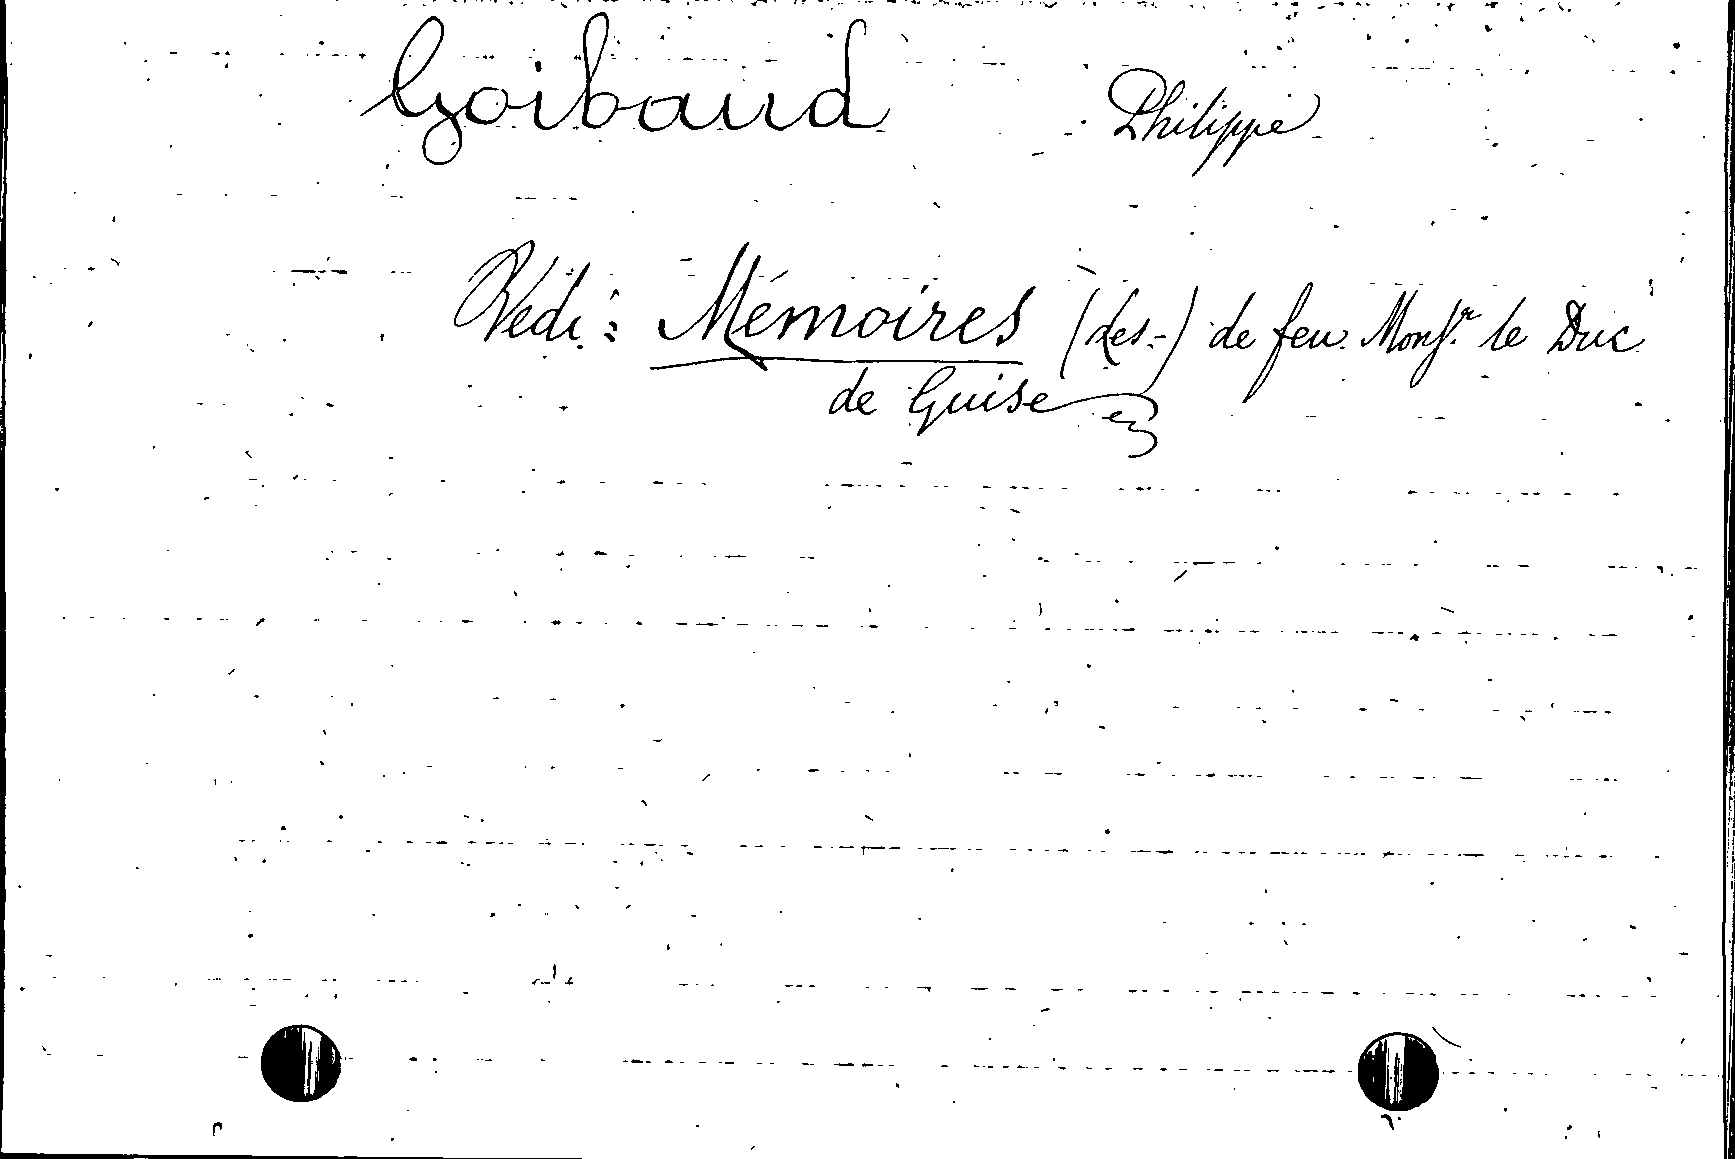 Goibaud Philippe
Vedi: Mémoires (des-) de feu Monsr le Duc
de Guise